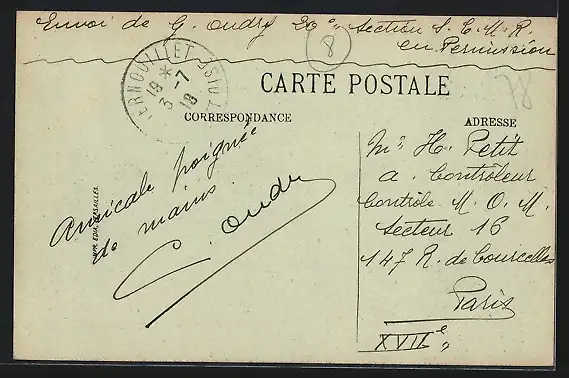 Envoi de G. Oudry 20e Section S. E. M. R.
en Permission
8
VERNOUILLET S-OISE
19 *
3 -7
18
CARTE POSTALE
78
CORRESPONDANCE
ADRESSE
Amicale poignée
de mains
G. Oudry
Mr H. Petit
a. Contrôleur
Contrôle M. O. M.
Secteur 16
147 R. de Courcelles
Paris
XVIIe
IMP. EDIA VERSAILLES